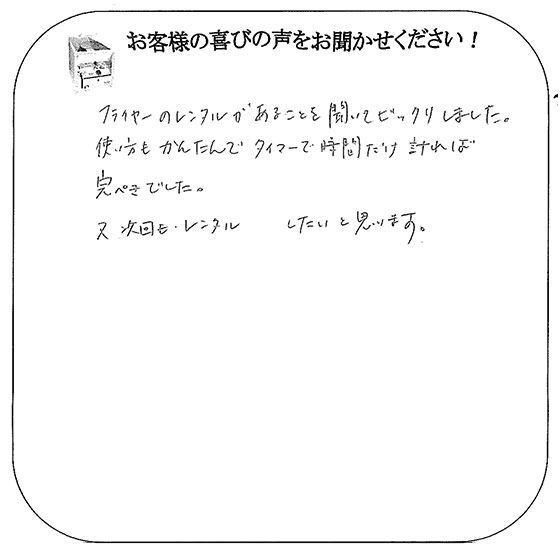 お客様の喜びの声をお聞かせください！
フライヤーのレンタルがあることを聞いてビックリしました。
使い方もかんたんでタイマーで時間だけ計れば
完ぺきでした。
又次回も・レンタル　　したいと思います。